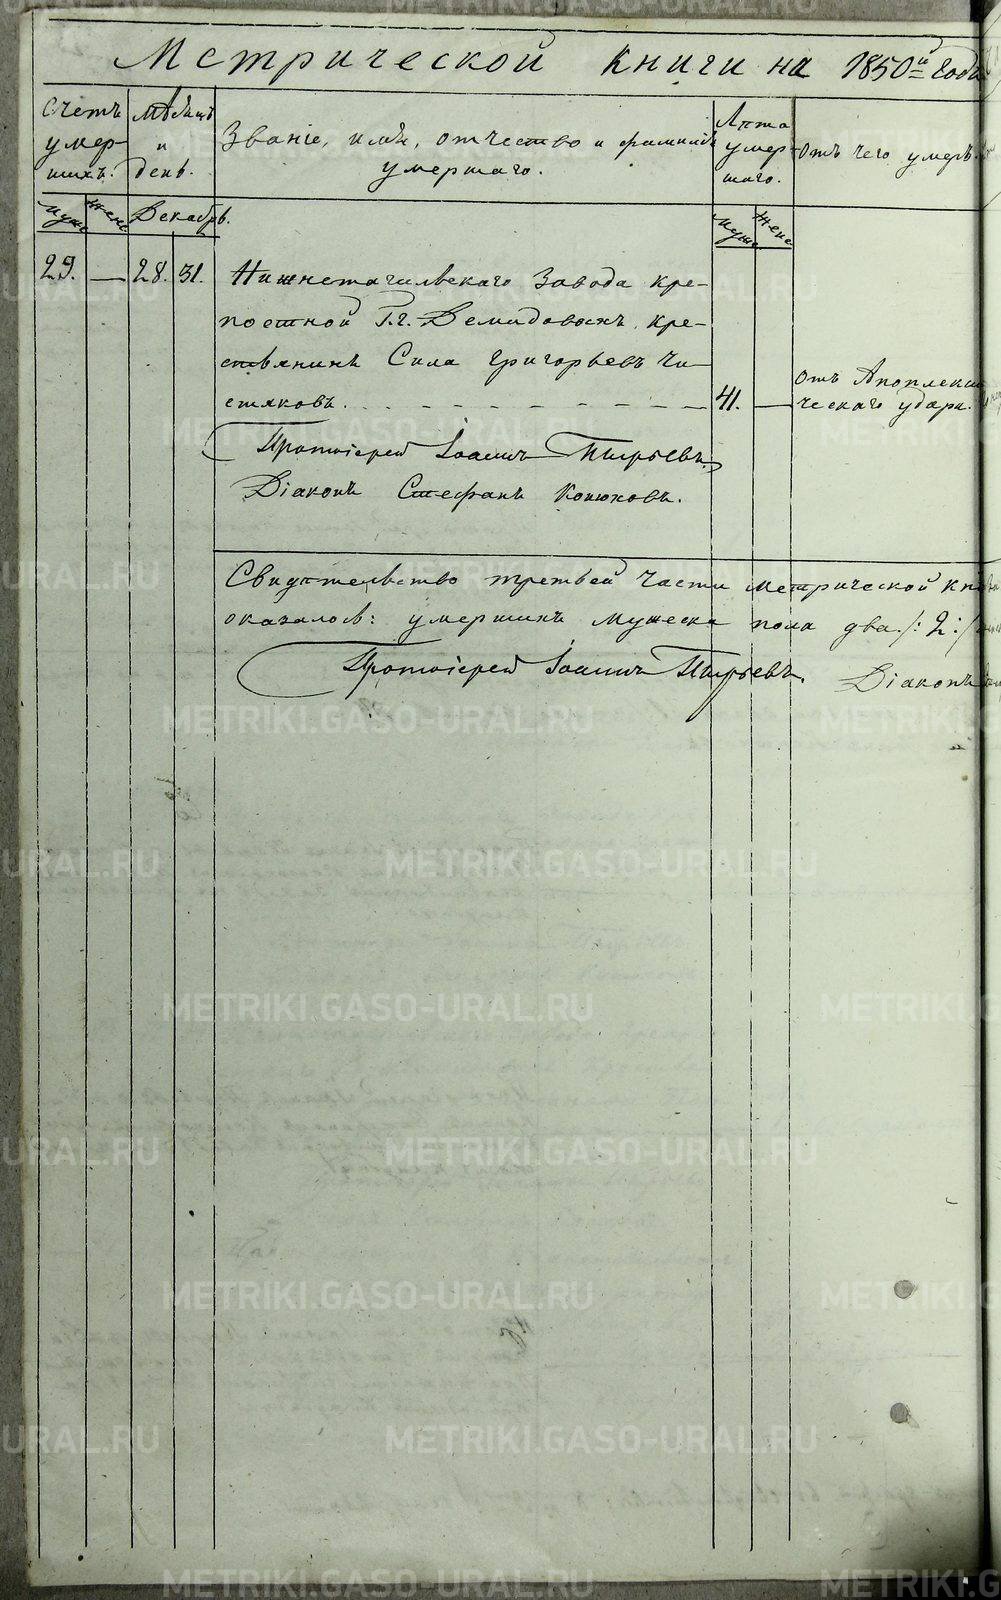 Метрической книги на 1850й годъ
Счетъ умер-шихъ.
Мѣсяцъ и день.
Званіе, имя, отчество и фамилія умершаго.
Лѣта умер-шаго.
отъ чего умеръ.
Муж. Жене
Декабрь.
Муж. Жене
29. — 28. 31. Нижнетагильскаго Завода кре-
постной Г.г. Демидовыхъ, кре-
стьянинъ Сила Григорьевъ Чи-
стяковъ. 41. —
отъ Апоплекси-
ческаго удара.
Протоіерей Іоаннъ Пырьевъ.
Діаконъ Стефанъ Конюховъ.
Свидѣтельство третьей части метрической
оказалось: умершихъ мужеска пола два /: 2: /
Протоіерей Іоаннъ Пырьевъ. Діаконъ
METRIKI.GASO-URAL.RU